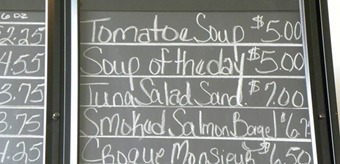 6 oz
2.25
4.55
3.75
3.75
4.25
Tomatoe Soup $5.00
Soup of the day $5.00
Tuna Salad Sand. $7.00
Smoked Salmon Bagel $6.7
Croque Monsieur $6.50